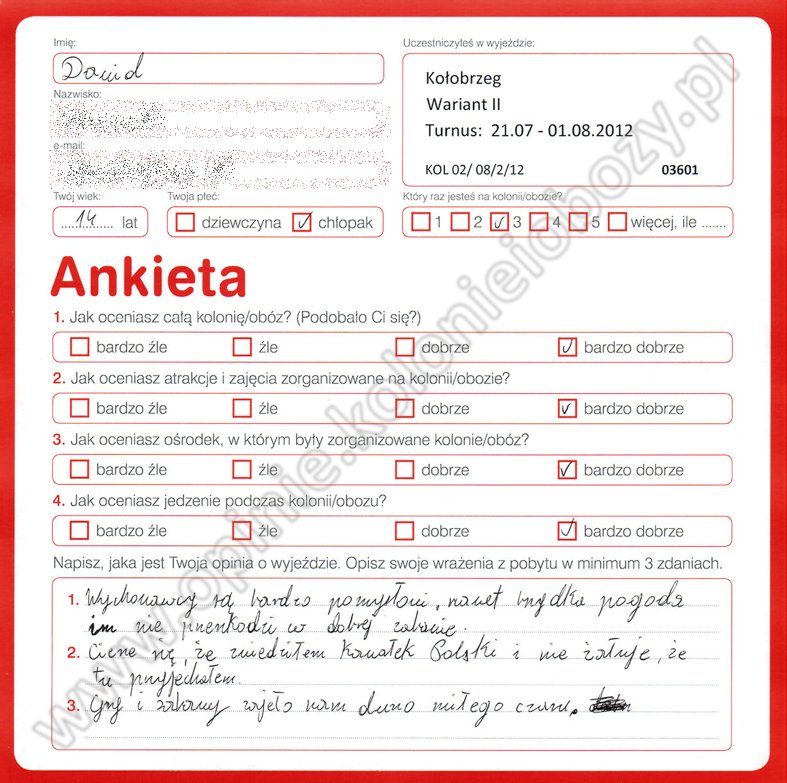 Imię:
Dawid
Uczestniczyłeś w wyjeździe:
Kołobrzeg
Wariant II
Turnus: 21.07 - 01.08.2012
KOL 02/ 08/2/12 03601
Nazwisko:
e-mail:
Twój wiek:
14 lat
Twoja płeć:
dziewczyna chłopak
Który raz jesteś na kolonii/obozie?
1 2 3 4 5 więcej, ile .......
Ankieta
1. Jak oceniasz całą kolonię/obóz? (Podobało Ci się?)
bardzo źle źle dobrze bardzo dobrze
2. Jak oceniasz atrakcje i zajęcia zorganizowane na kolonii/obozie?
bardzo źle źle dobrze bardzo dobrze
3. Jak oceniasz ośrodek, w którym były zorganizowane kolonie/obóz?
bardzo źle źle dobrze bardzo dobrze
4. Jak oceniasz jedzenie podczas kolonii/obozu?
bardzo źle źle dobrze bardzo dobrze
Napisz, jaka jest Twoja opinia o wyjeździe. Opisz swoje wrażenia z pobytu w minimum 3 zdaniach.
1. Wychowawcy są bardzo pomysłowi, nawet brzydka pogoda
im nie przeszkodzi w dobrej zabawie.
2. Ciesze się, że zwiedziłem kawałek Polski i nie żałuje, że
tu przyjechałem.
3. Gry i zabawy zajęło nam dużo miłego czasu.
www.opinie.kolonieiobozy.pl